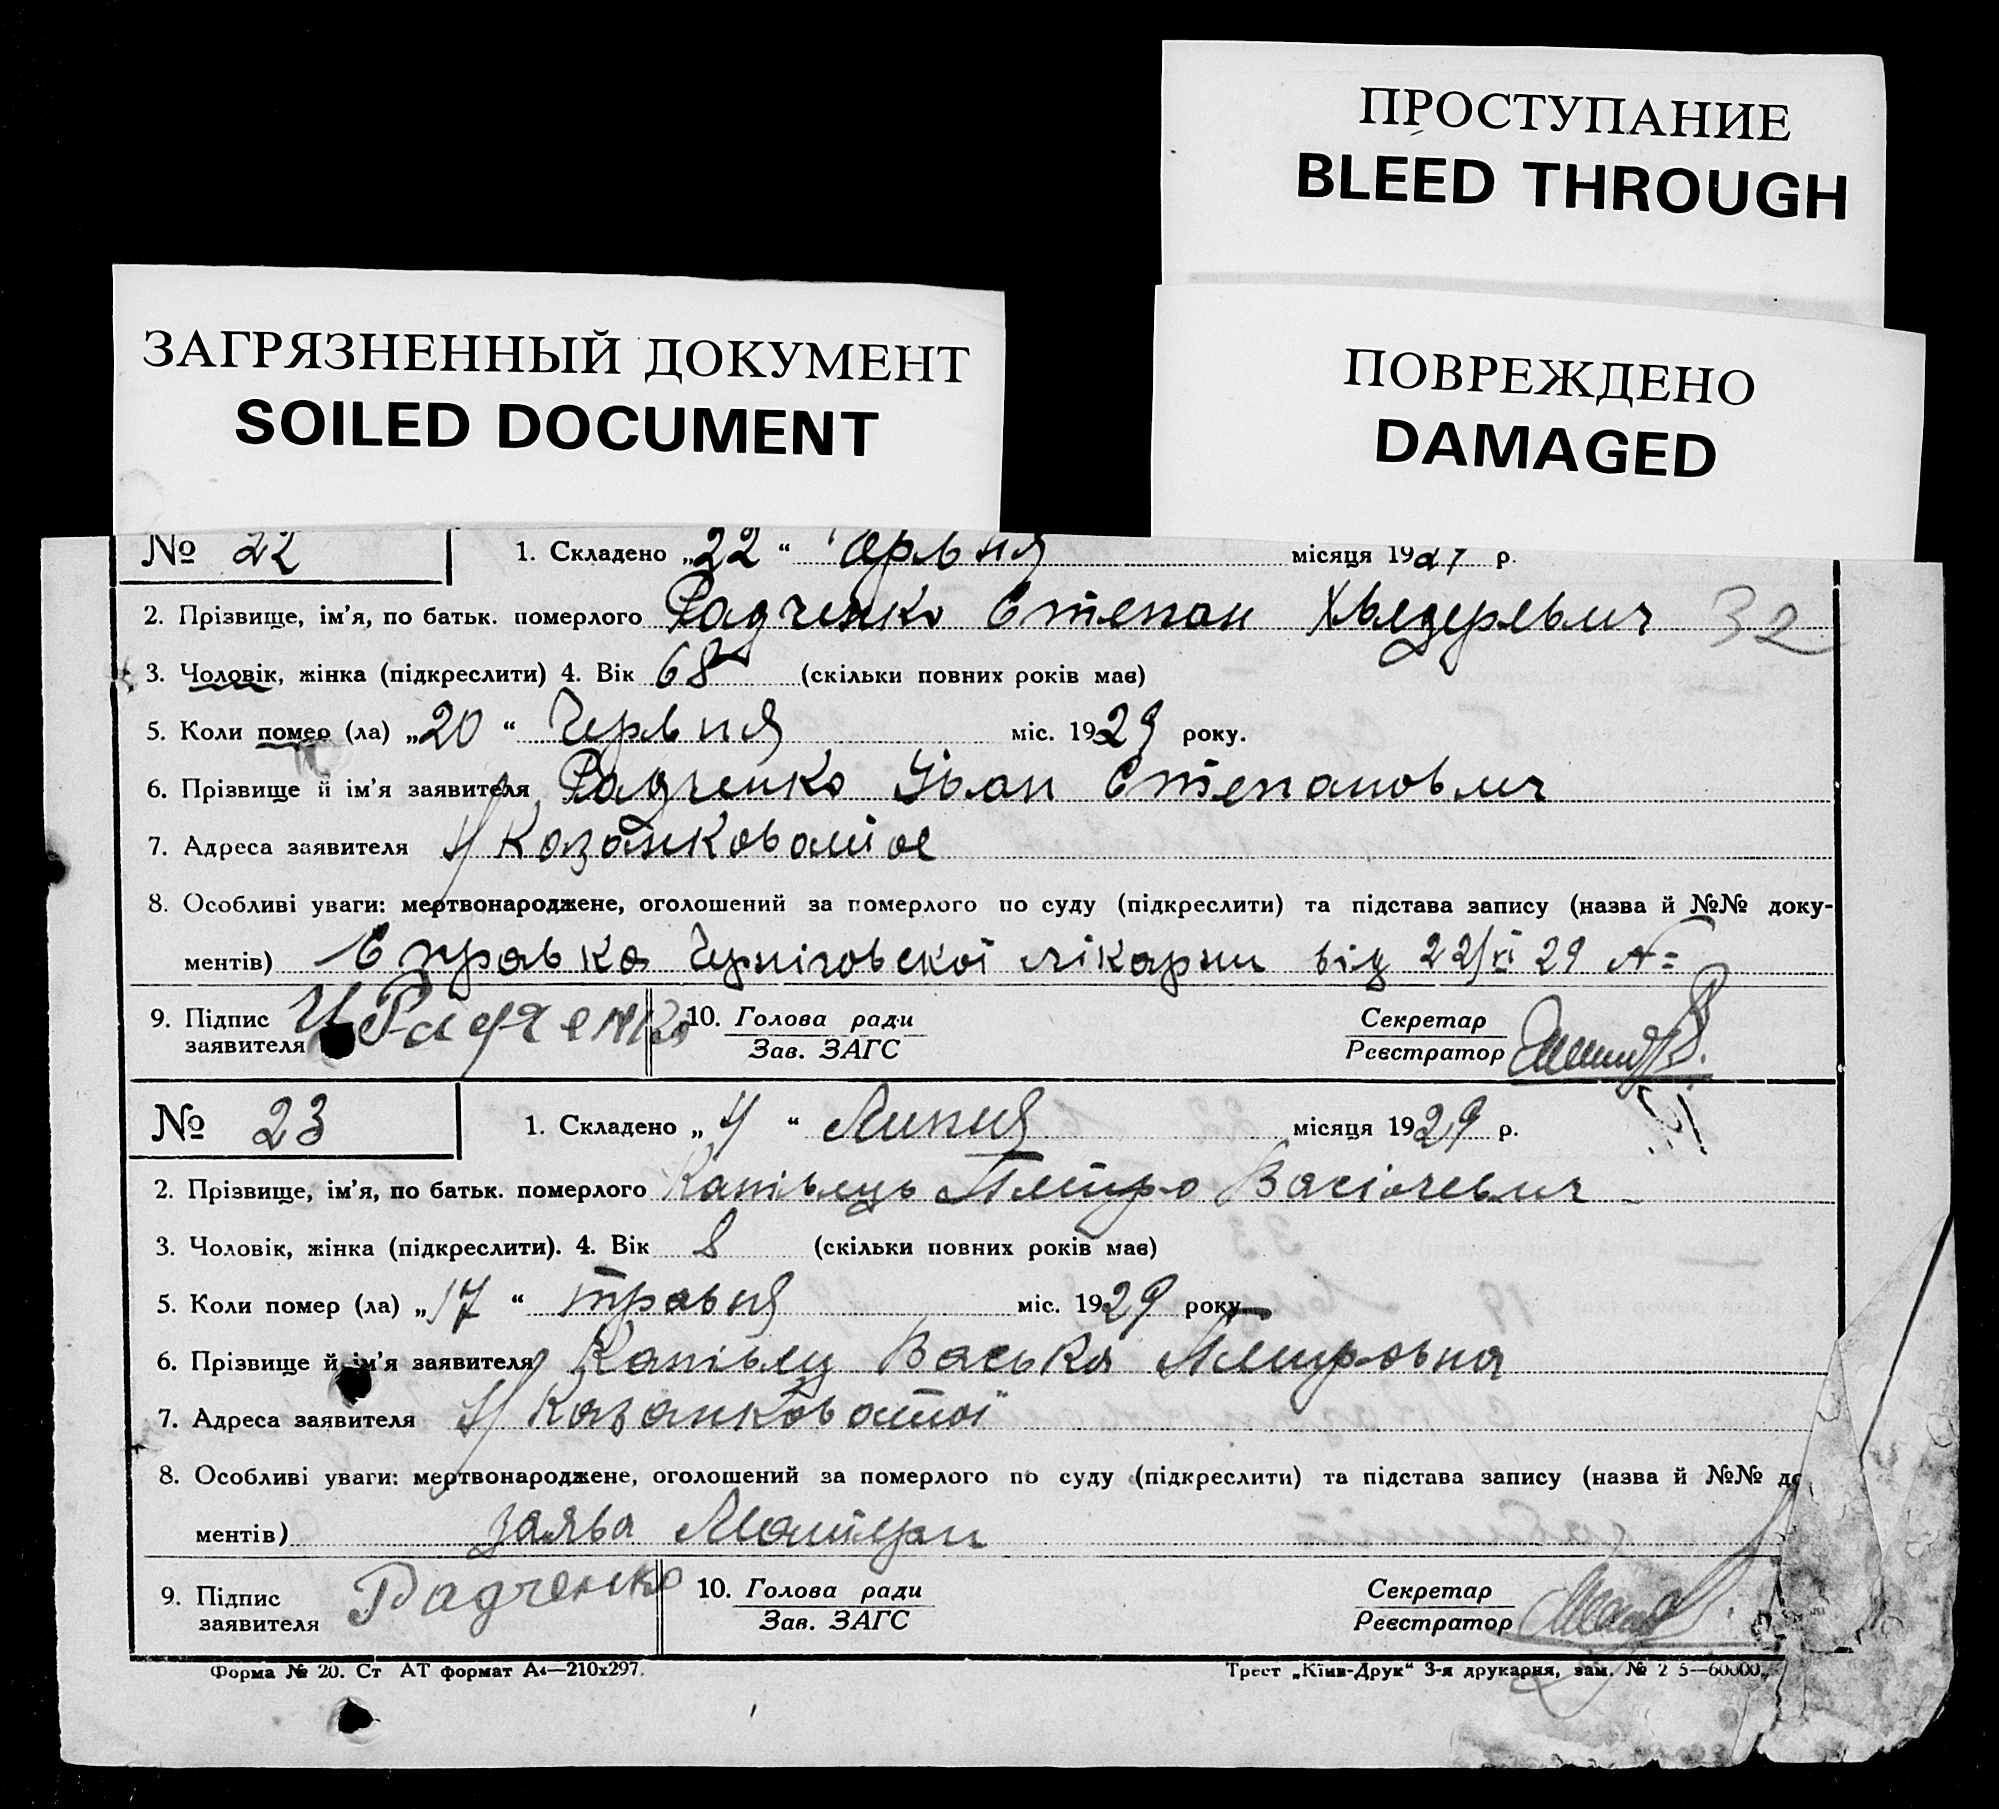 ПРОСТУПАНИЕ
BLEED THROUGH
ЗАГРЯЗНЕННЫЙ ДОКУМЕНТ
SOILED DOCUMENT
ПОВРЕЖДЕНО
DAMAGED
№ 22 1. Складено „22“ Червня місяця 1929 р.
2. Прізвище, ім’я, по батьк. померлого Радченко Степан 32
3. Чоловік, жінка (підкреслити) 4. Вік 68 (скільки повних років має)
5. Коли помер (ла) „20“ Червня міс. 1929 року.
6. Прізвище й ім’я заявителя Радченко Іван Степанович
7. Адреса заявителя
8. Особливі уваги: мертвонароджене, оголошений за померлого по суду (підкреслити) та підстава запису (назва й №№ доку-
ментів) Справка Черніговскої лікарни від 22/VI 29 №=
9. Підпис заявителя И Радченко 10. Голова ради Зав. ЗАГС Секретар Реєстратор
№ 23 1. Складено „4“ Липня місяця 1929 р.
2. Прізвище, ім’я, по батьк. померлого Петро
3. Чоловік, жінка (підкреслити). 4. Вік 8 (скільки повних років має)
5. Коли помер (ла) „17“ травня міс. 1929 року
6. Прізвище й ім’я заявителя
7. Адреса заявителя
8. Особливі уваги: мертвонароджене, оголошений за померлого по суду (підкреслити) та підстава запису (назва й №№ до
ментів) заява
9. Підпис заявителя Радченко 10. Голова ради Зав. ЗАГС Секретар Реєстратор
Форма № 20. Ст АТ формат А4—210х297. Трест „Київ-Друк“ 3-я друкарня, зам. №